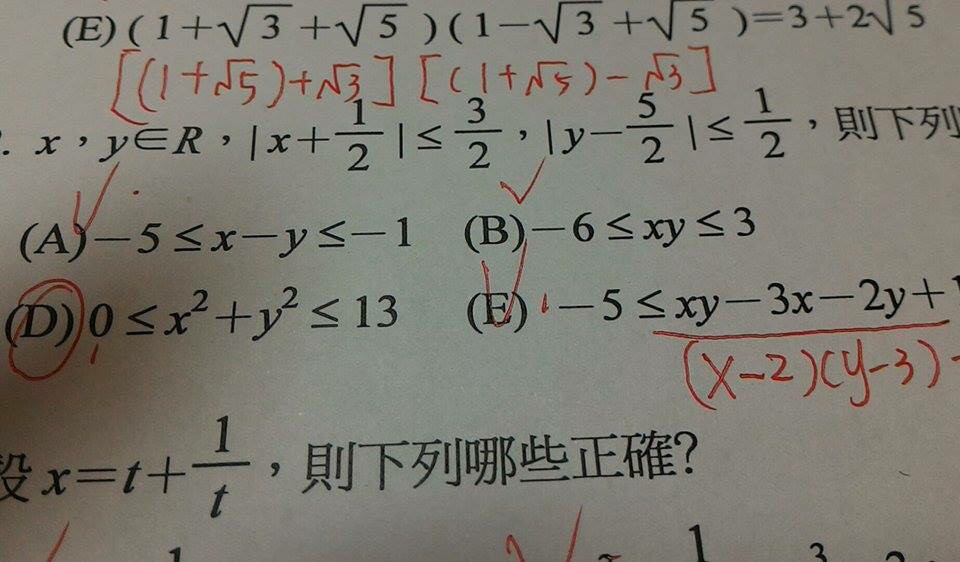 (E)(1+√3+√5)(1-√3+√5)=3+2√5
[(1+√5)+√3][(1+√5)-√3]
. x,y∈R,|x+1/2|≤3/2,|y-5/2|≤1/2,則下列
(A)-5≤x-y≤-1 (B)-6≤xy≤3
(D)0≤x²+y²≤13 (E)-5≤xy-3x-2y+
(x-2)(y-3)
設x=t+1/t,則下列哪些正確?